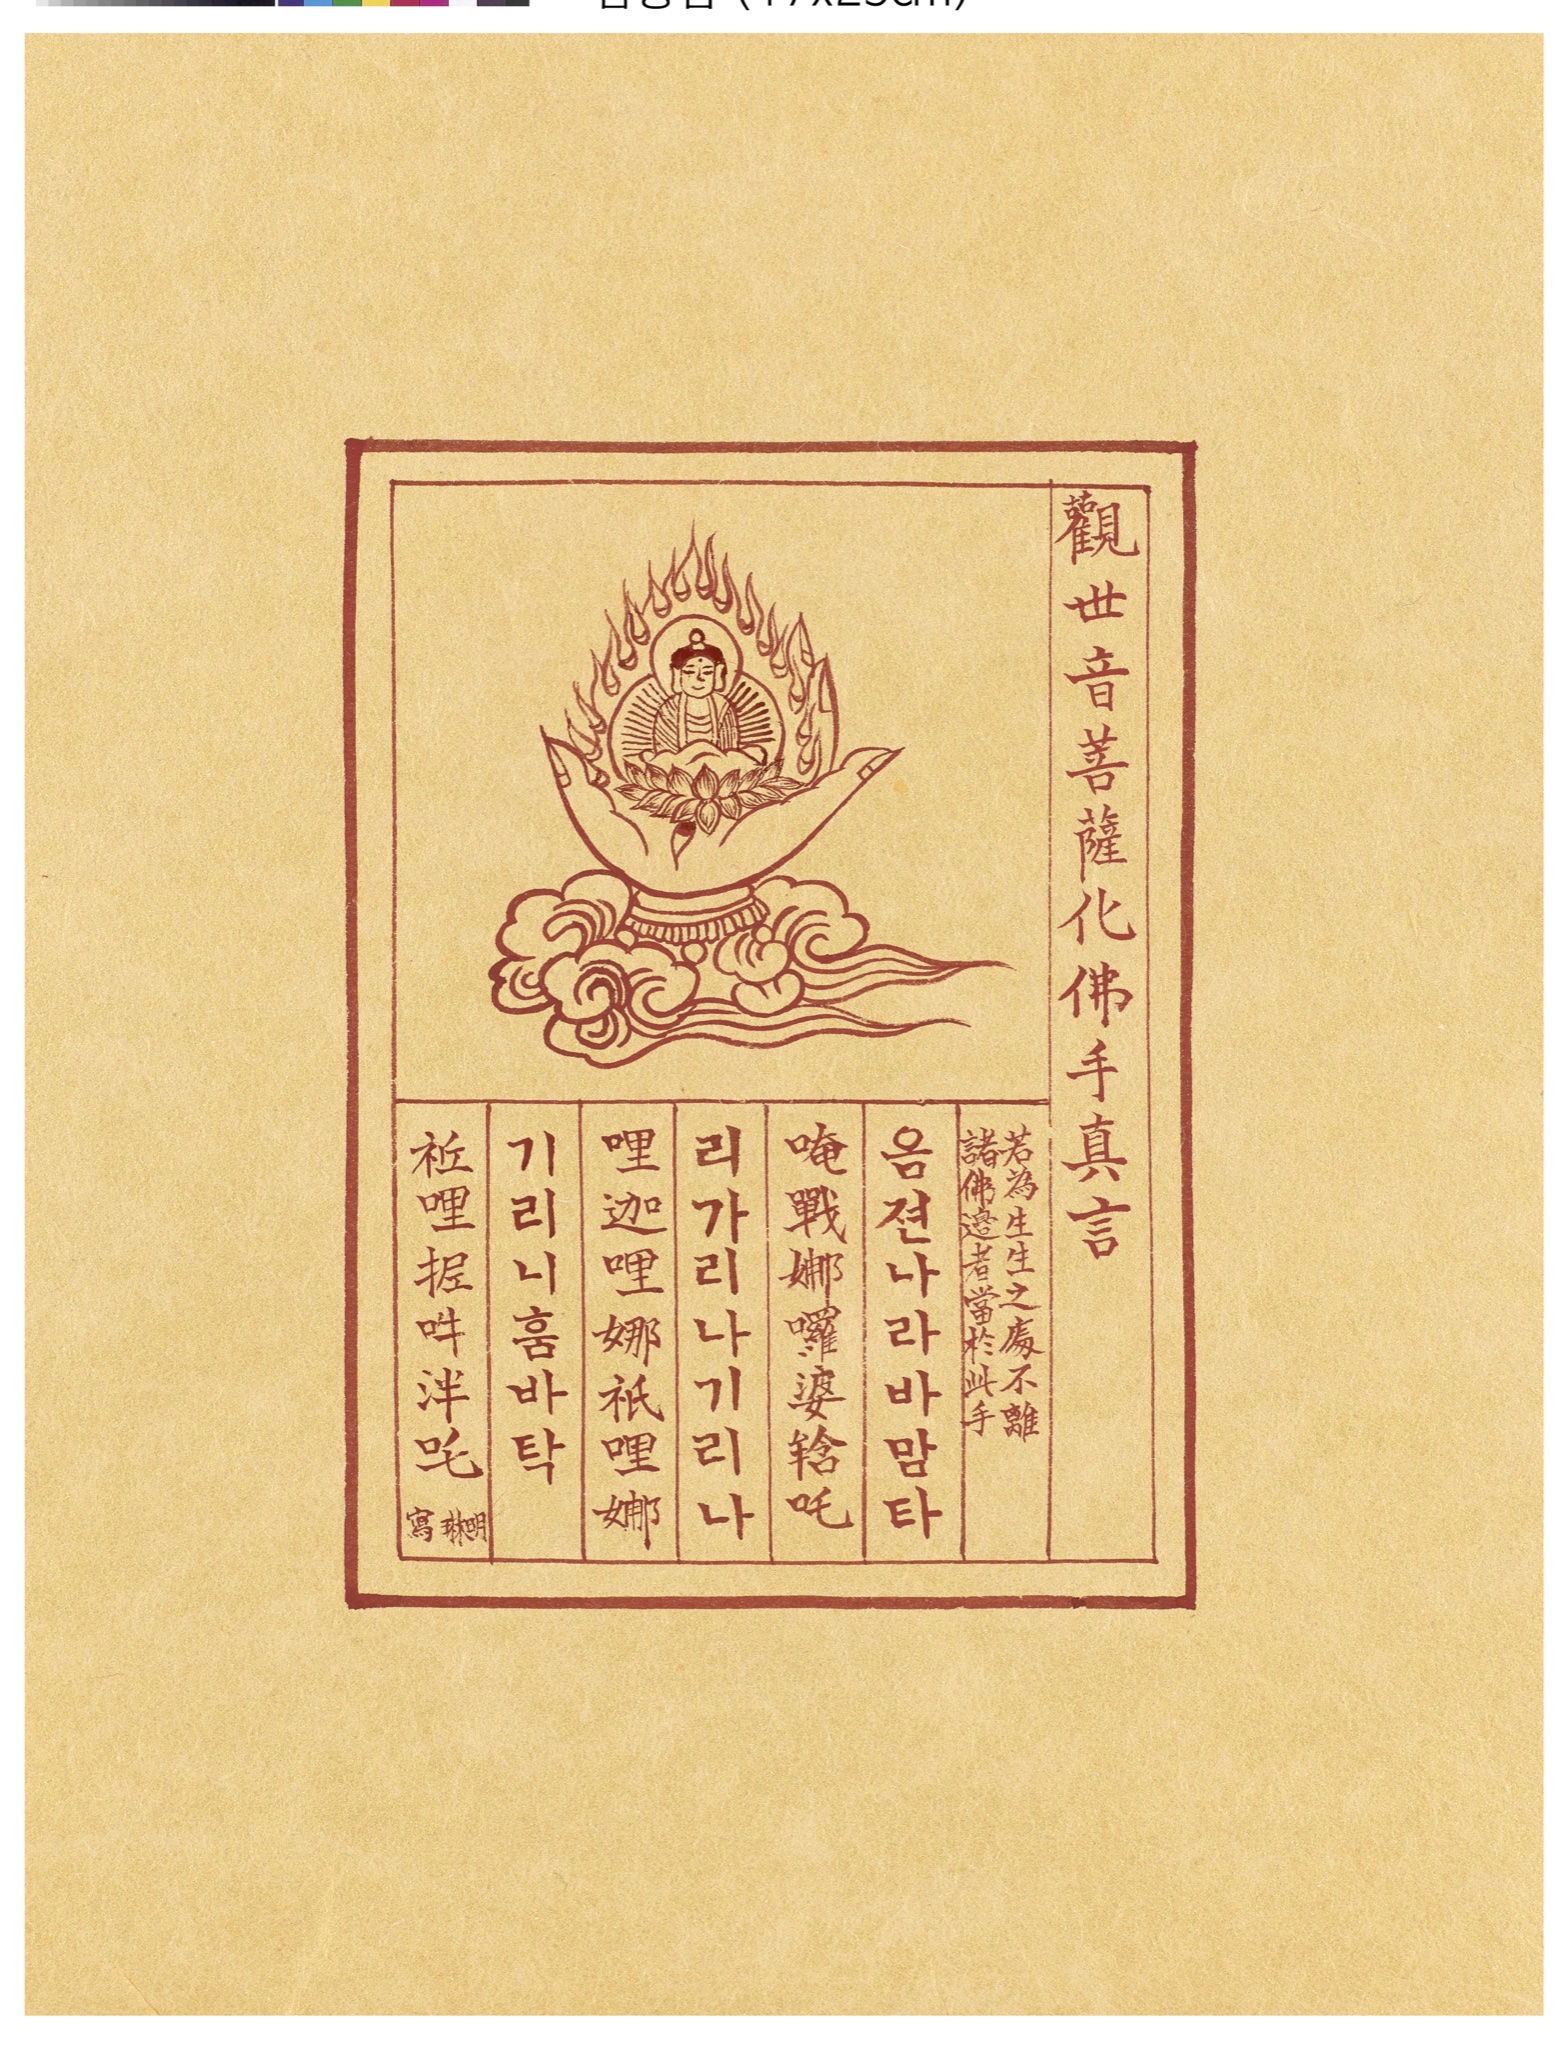 觀世音菩薩化佛手真言
若為生生之處不離
諸佛邊者當於此手
옴젼나라바맘타
唵戰娜囉婆吒
리가리나기리나
哩迦哩娜祇哩娜
기리니훔바탁
哩抳吽泮吒
明琳 寫